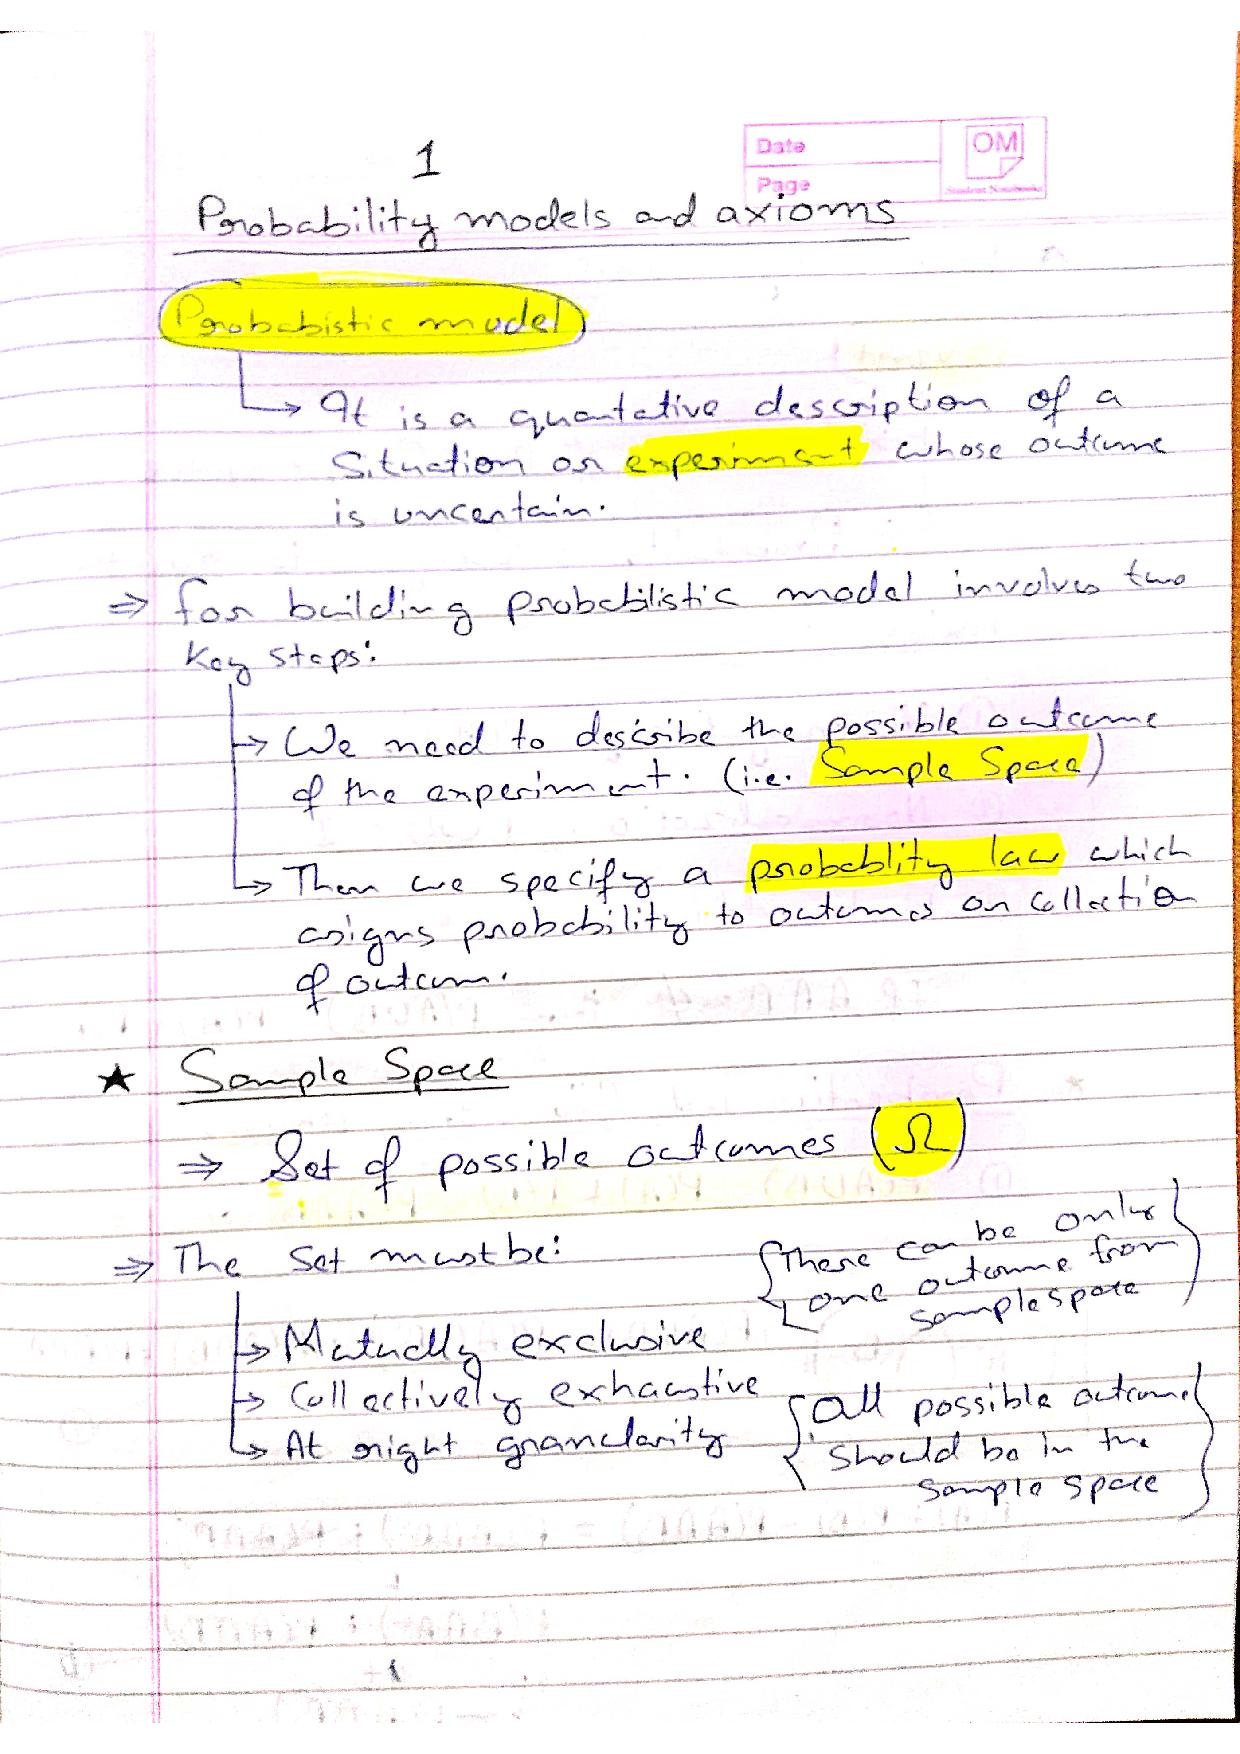 Date
OM
Page
Student Notebooks
1
Probability models and axioms
Probabistic model
It is a quantative description of a
Situation or experiment whose outcome
is uncertain.
⇒ for building probabilistic model involves two
Key steps:
→ We need to describe the possible outcome
of the experiment. (i.e. Sample Space)
→ Then we specify a probablity law which
asigns probability to outcomes or collection
of outcom.
★ Sample Space
⇒ Set of possible outcomes (Ω)
⇒ The set must be:
{There can be only
one outcome from
sample space}
→ Mutually exclusive
→ Collectively exhaustive
→ At right granularity
{all possible outcome
should be in the
sample space}